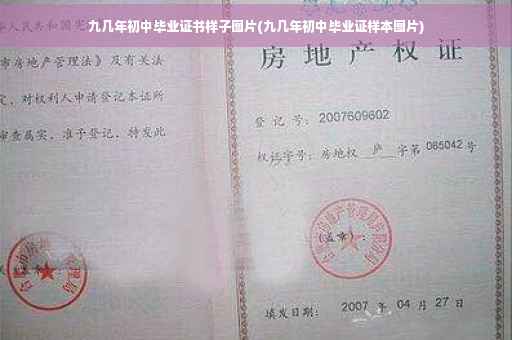 九几年初中毕业证书样子图片(九几年初中毕业证样本图片)
人民共和国宪
市房地产管理法》及有关法
定，对权利人申请登记本证所
审查属实，准予登记，特发此
房地产权证
登记号：2007609602
权证字号：房地权 庐 字第 085042 号
(盖章)：
填发日期：2007 年 04 月 27 日